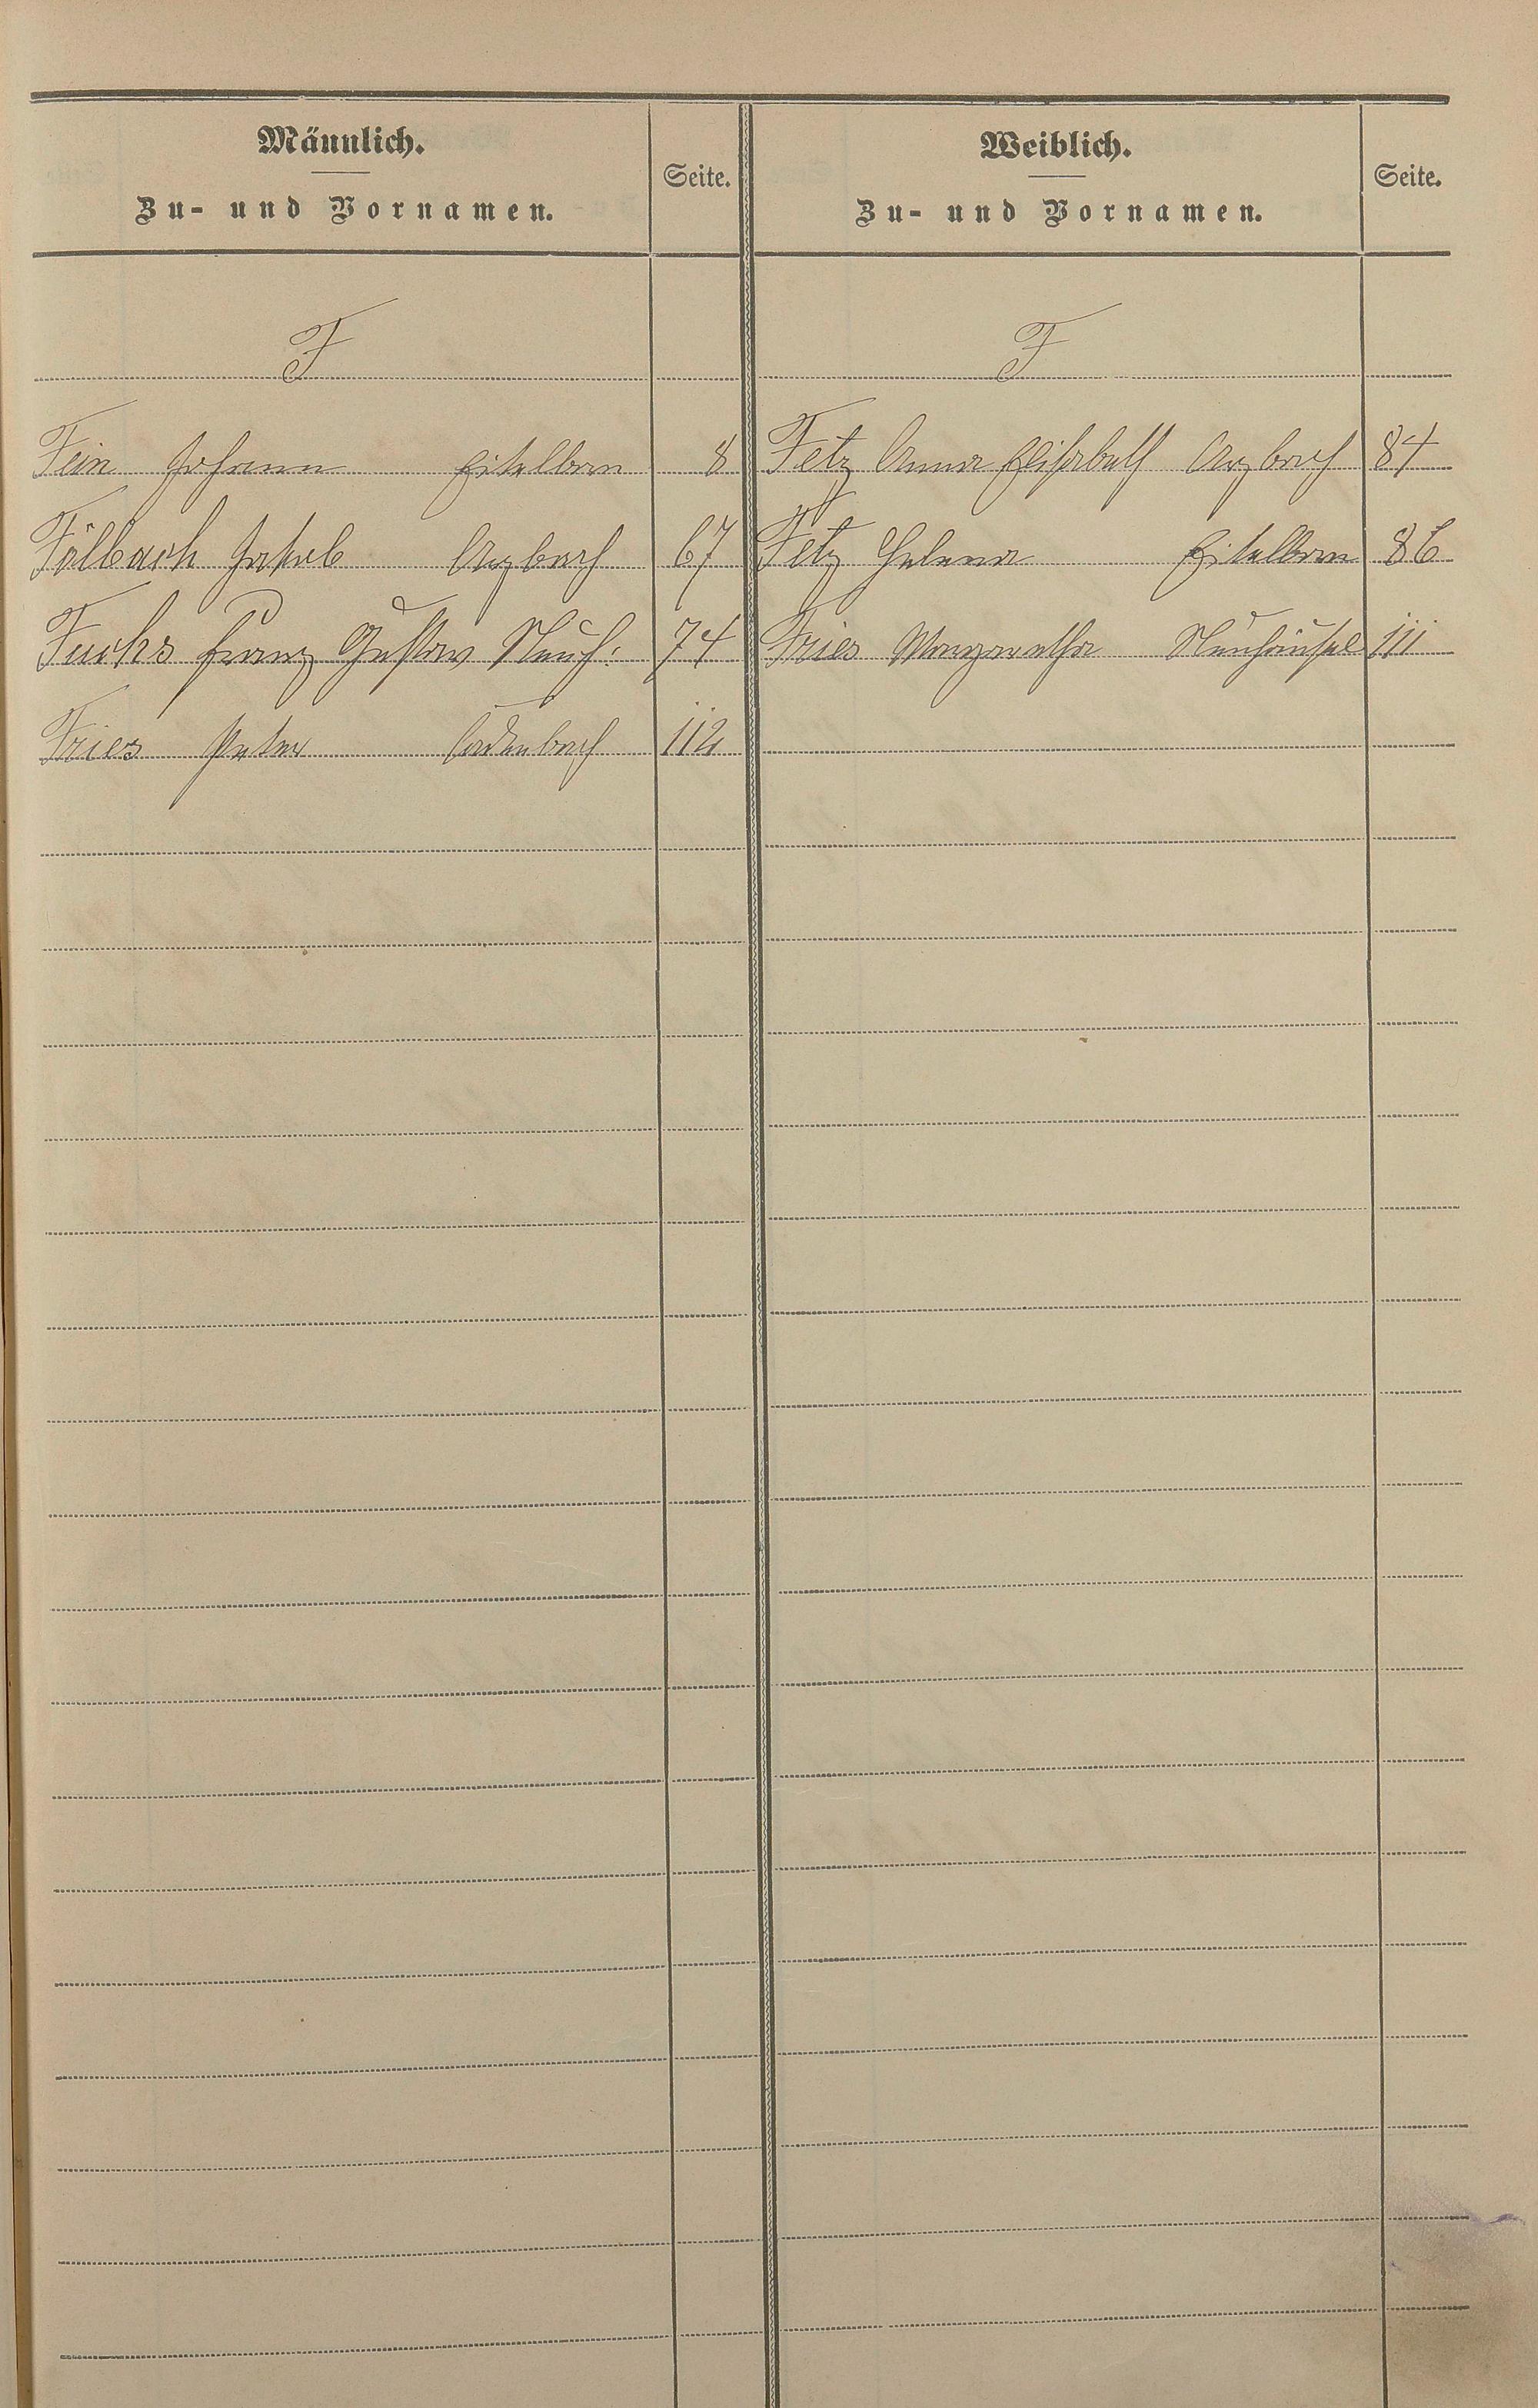 Männlich.
Zu- und Vornamen.
Seite.
F
Fein Johann Eitelborn 8
Fölbach Jakob Arzbach 67
Fuchs Franz Gustav Neuh: 74
Fries Peter Cadenbach 112
Weiblich.
Zu- und Vornamen.
Seite.
F
Fetz Anna Elisabeth Arzbach 84
Fetz Helena Eitelborn 86
Fries Margaretha Neuhäusel 111